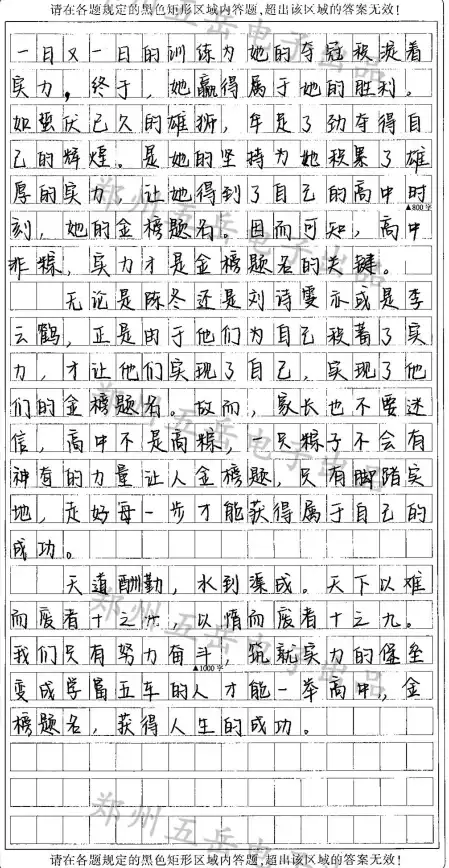 请在各题规定的黑色矩形区域内答题,超出该区域的答案无效!
一日又一日的训练为她的夺冠积淀着
实力。终于,她赢得属于她的胜利。
如蛰伏已久的雄狮,牟足了劲夺得自
己的辉煌。是她的坚持为她积累了雄
厚的实力,让她得到了自己的高中时
▲800字
刻,她的金榜题名。因而可知,高中
非粽,实力才是金榜题名的关键。
无论是陈冬还是刘诗雯亦或是李
云鹤,正是由于他们为自己积蓄了实
力,才让他们实现了自己,实现了他
们的金榜题名。故而,家长也不要迷
信,高中不是高粽,一只粽子不会有
神奇的力量让人金榜题,只有脚踏实
地,走好每一步才能获得属于自己的
成功。
天道酬勤,水到渠成。天下以难
而废者十之一,以惰而废者十之九。
我们只有努力奋斗,筑就实力的堡垒
▲1000字
变成学富五车的人才能一举高中,金
榜题名,获得人生的成功。
请在各题规定的黑色矩形区域内答题,超出该区域的答案无效!
郑州五岳电子出品
郑州五岳电子出品
郑州五岳电子出品
郑州五岳电子出品